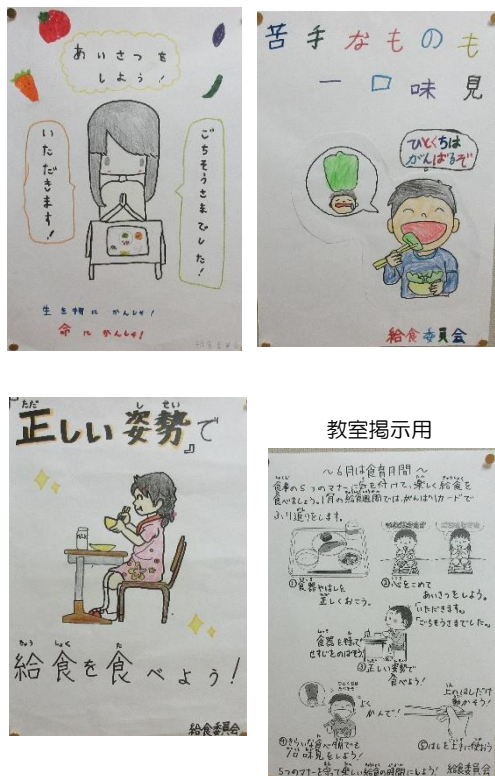 あいさつを
しよう！
いただきます！
ごちそうさまでした！
生き物に かんしゃ！
命に かんしゃ！
苦手なものも
一口味見
ひとくちは
がんばるぞ
給食委員会
『正しい姿勢』で
ただ
しせい
給食を食べよう！
きゅう しょく た
給食委員会
教室掲示用
～6月は食育月間～
食事の5つのマナーに気を付けて、楽しく給食を
食べましょう。1月の給食週間では、がんばりカードで
ふり返りをします。
①食器やはしを
正しくおこう。
②心をこめて
あいさつをしよう。
「いただきます。」
「ごちそうさまでした。」
食器を持って
せすじをのばそう！
③正しい姿勢で
食べよう！
よく
かんで！
上のはしだけ
動かそう！
④きらいな食べ物でも
一口味見をしよう！
⑤はしを上手に使おう
5つのマナーを守って楽しい給食の時間にしよう！
給食委員会